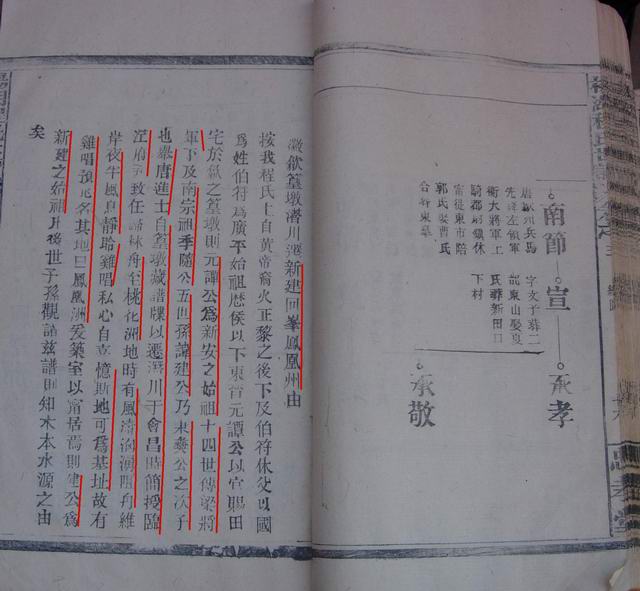 南節
唐歙州兵馬
先鋒左領軍
衛大將軍上
騎都尉休
徙東市陪
郭氏娶曹氏
合葬東皋
宣
字文子葬二
都東山娶夏
氏葬新田口
下村
承孝
承敬
徽歙篁墩川遷新建回峯鳳凰州由
按我程氏上自黃帝裔火正黎之後下及伯符休父以國
爲姓伯符爲廣平始祖歷侯以下東晉元譚公以官賜田
宅於歙之篁墩則元譚公爲新安之始祖十四世傳梁將
軍下及南宗祖季隨公五世孫諱建公乃東彝公之次子
也舉唐進士自篁墩藏譜牒以遷川于會昌間簡授臨
江府尹致任舟至桃花洲地時有風湧阻舟維
岸夜半風息靜聆雞唱私心自喜憶斯地可爲基址故有
雞唱預兆名其地曰鳳凰洲爰築室以甯居焉則建公爲
新建之始祖凡後世子孫觀誦茲譜則知木本水源之由
矣